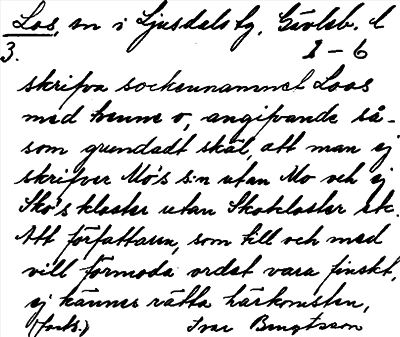 Los, sn i Ljusdals tg, Gävleb. l
3. 1-6
skrifva sockennamnet Loos
med tvenne o, angifvande så-
som grundadt skäl, att man ej
skrifver Mo's s:n utan Mo och ej
Sko's kloster utan Skokloster etc.
Att författaren, som till och med
vill förmoda ordet vara finskt,
ej känner rätta härkomsten,
(forts.) Ivar Bengtsson